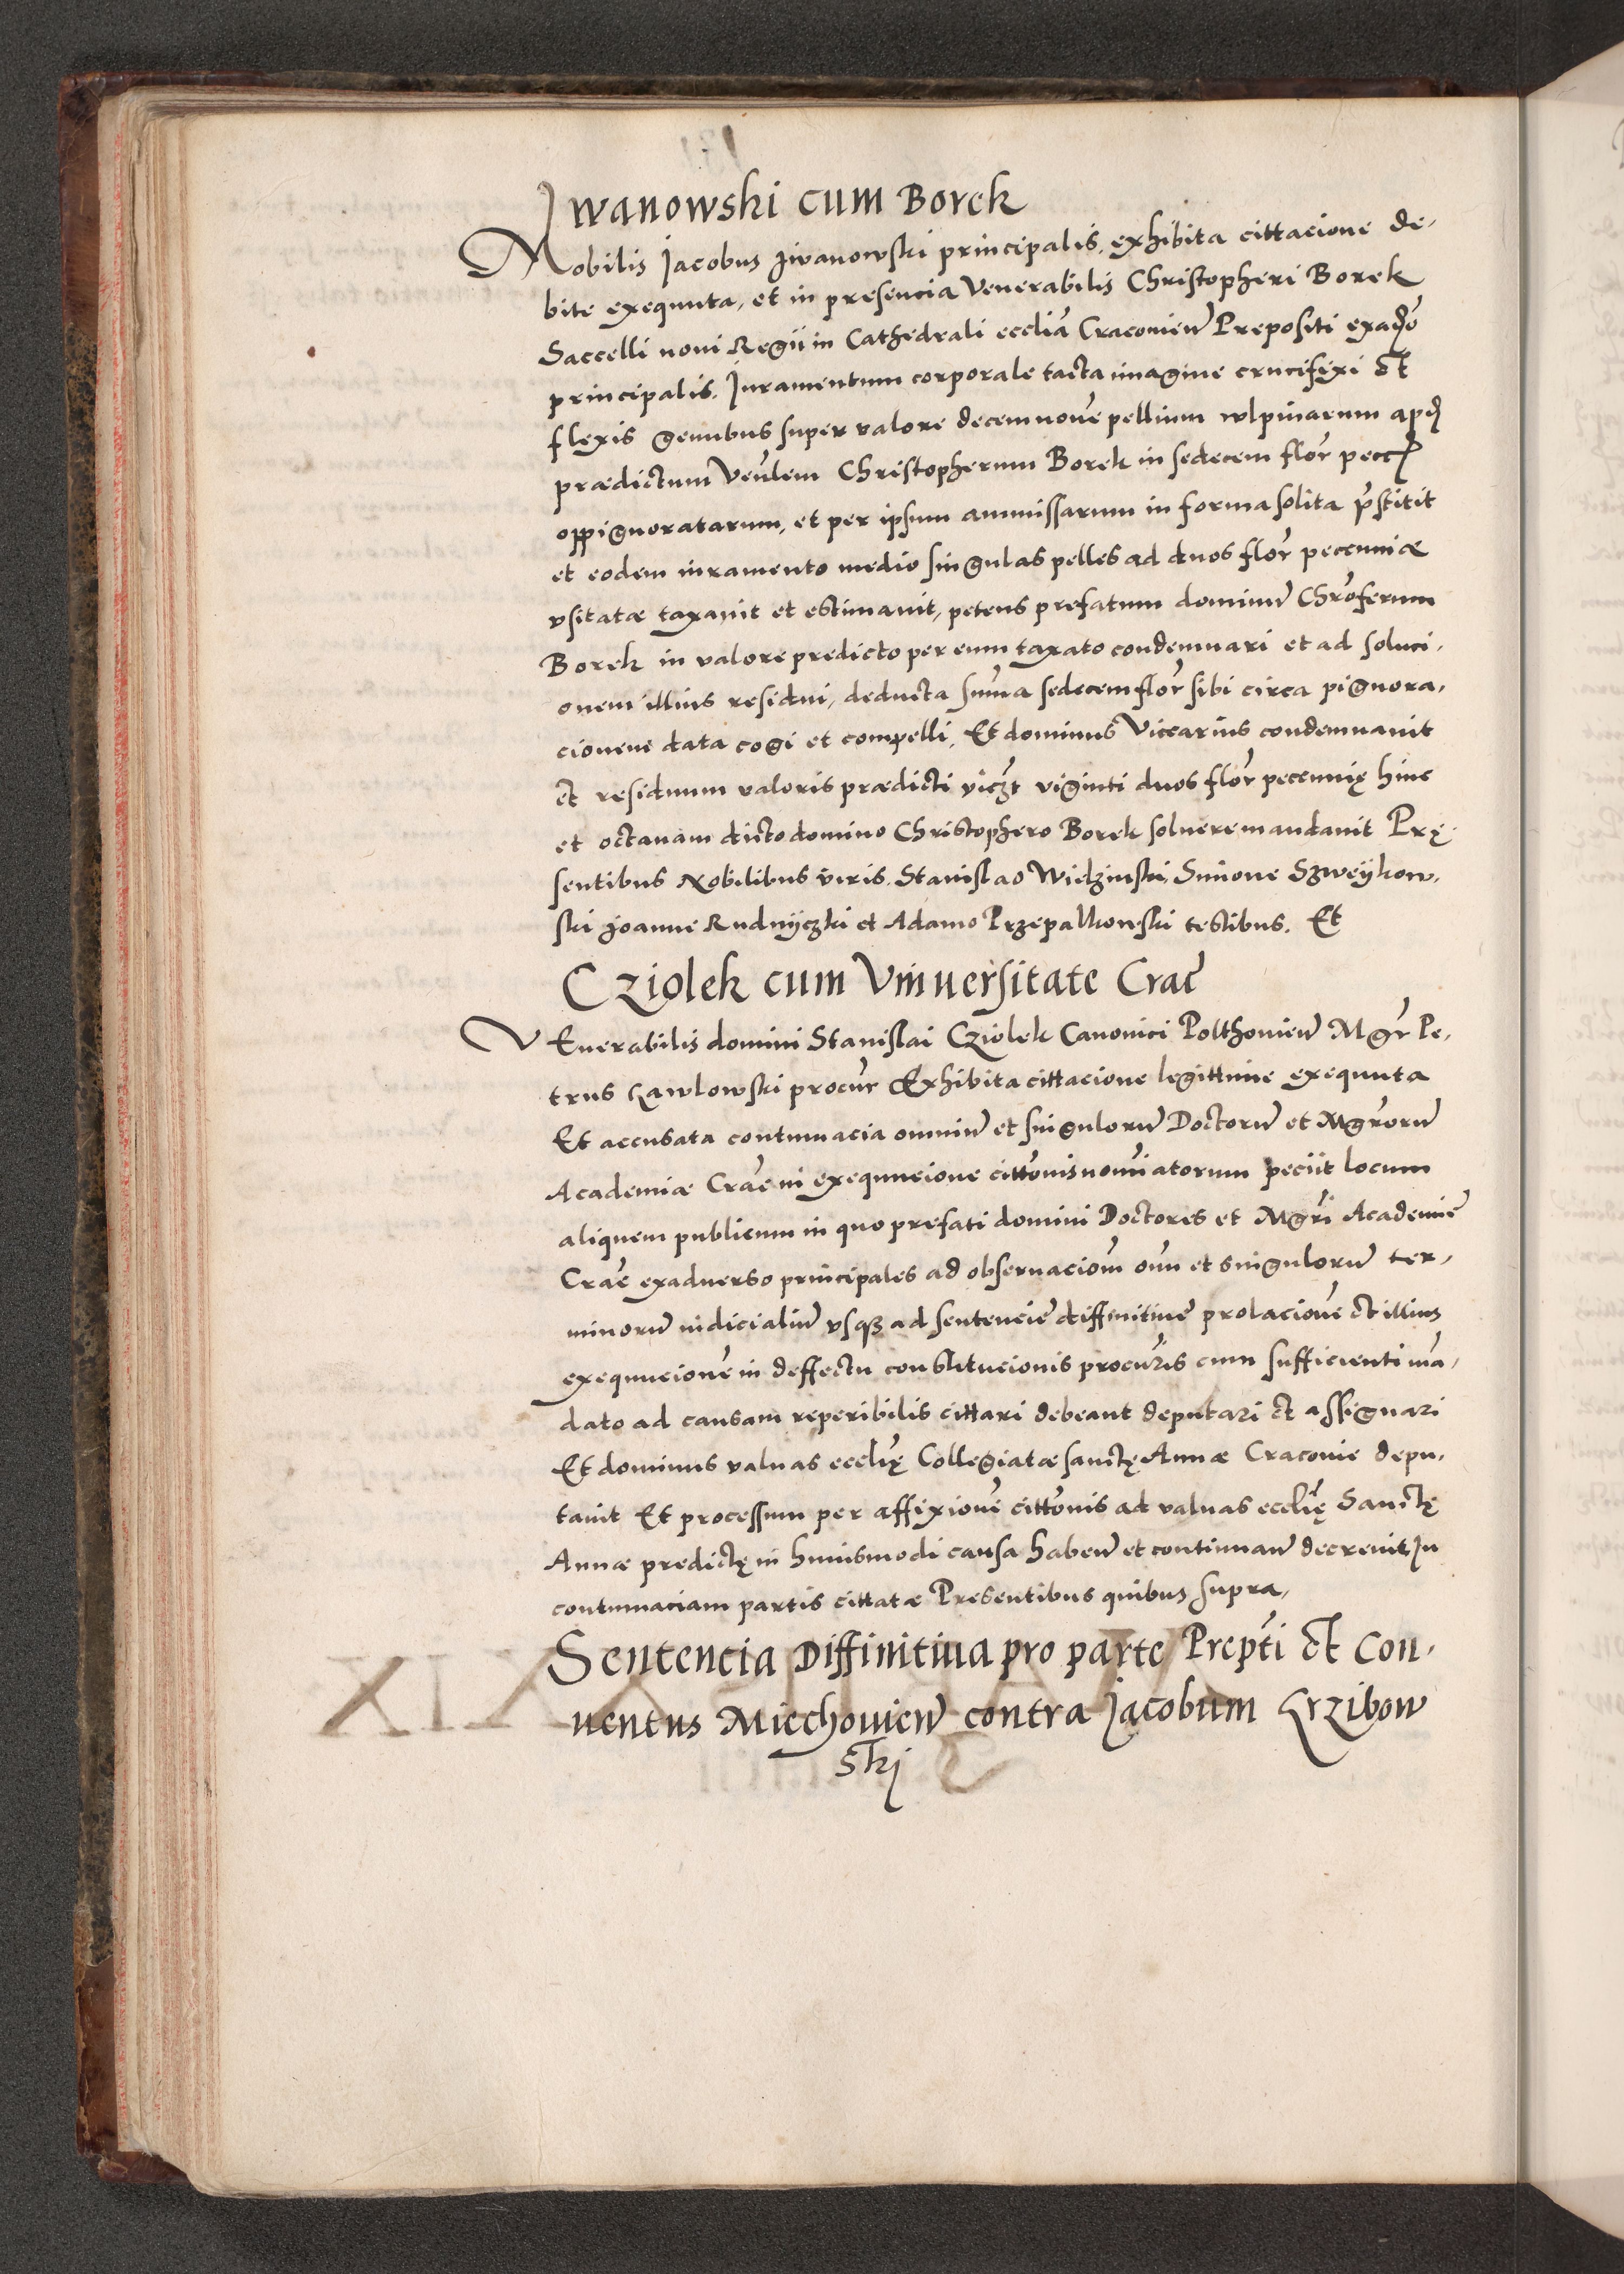 Jwanowski cum Borek
Nobilis Jacobus Jwanowski principalis, exhibita cittacione de-
bite exequuta, et in presencia Venerabilis Christopheri Borek
Saccelli noui Regii in Cathedrali eccliã Cracouieñ Prepositi exadṽo
principalis. Juramentum corporale tacta imagine crucifixi et
flexis genubus super valore decemnouẽ pellium wlpinarum apd
prædictum Veñlem Christopherum Borek in sedecem floř pecc
oppignoratarum, et per ipsum ammissarum in forma solita p̃stitit
et eodem iuramento medio singulas pelles ad duos floř pecuniæ
vsitatæ taxauit et estimauit, petens prefatum dominũ Chr̃oferum
Borek in valore predicto per eum taxato condemnari et ad soluci-
onem illius residui, deducta sum̃a sedecem floř sibi circa pignora-
cionem data cogi et compelli. Et dominus Vicearius condemnauit
et residuum valoris prædicti viczt viginti duos floř pecunię hinc
et octauam dicto domino Christophero Borek soluere mandauit Prę-
sentibus Nobilibus viris Stanislao Wielzinski, Simone Szweykow-
ski Joanne Rudnyczki et Adamo Przepalkowski testibus. Et
Cziolek cum Vniuersitate Crac̃
VEnerabilis domini Stanislai Cziolek Canonici Polthouieñ Mgr̃ Pe-
trus Kawlowski procur̃ Exhibita cittacione legittime exequuta
Et accusata contumacia omniũ et singulorũ Doctorũ et Mgr̃orũ
Academiæ Crac̃ in exequucione citto͂nis nomĩatorum peciit locum
aliquem publicum in quo prefati domini Doctores et Mgr̃i Academiẽ
Crac̃ exaduerso principales ad obseruaciom̃ om̃ et singulorũ ter-
minorũ iudicialiũ vsqz ad sentencie diffinitiue prolacionẽ et illius
exequucionẽ in deffectu constitucionis procur̃is cum sufficienti mã-
dato ad causam reperibilis cittari debeant deputari et assignari
Et dominus valuas eccl̃ię Collegiatæ sanctę Annæ Cracouie depu-
tauit Et processum per affixionẽ citto͂nis ad valuas eccl̃ię Sanctę
Annæ predictę in huiusmodi causa habeñ et continuañ decreuit, In
contumaciam partis cittatæ Presentibus quibus supra,
Sentencia Diffinitiua pro parte Prepti et Con-
uentus Miechouieñ contra Jacobum Krzibow
ski